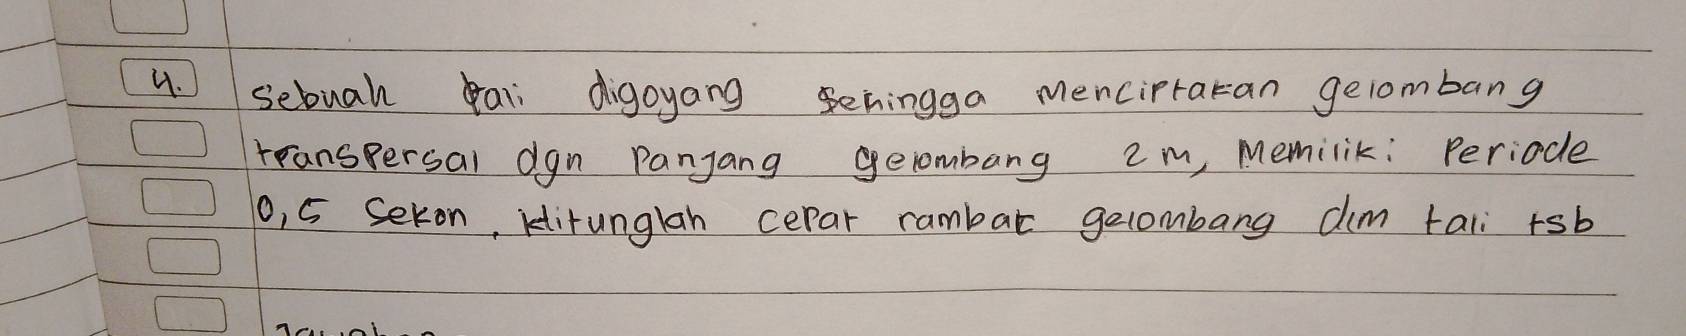 4. Sebuah tali digoyang sehingga menciptakan gelombang
transpersal dgn panjang gelombang 2 m, memiliki periode
0,5 sekon, Hitunglah cepat rambat gelombang dlm tali tsb